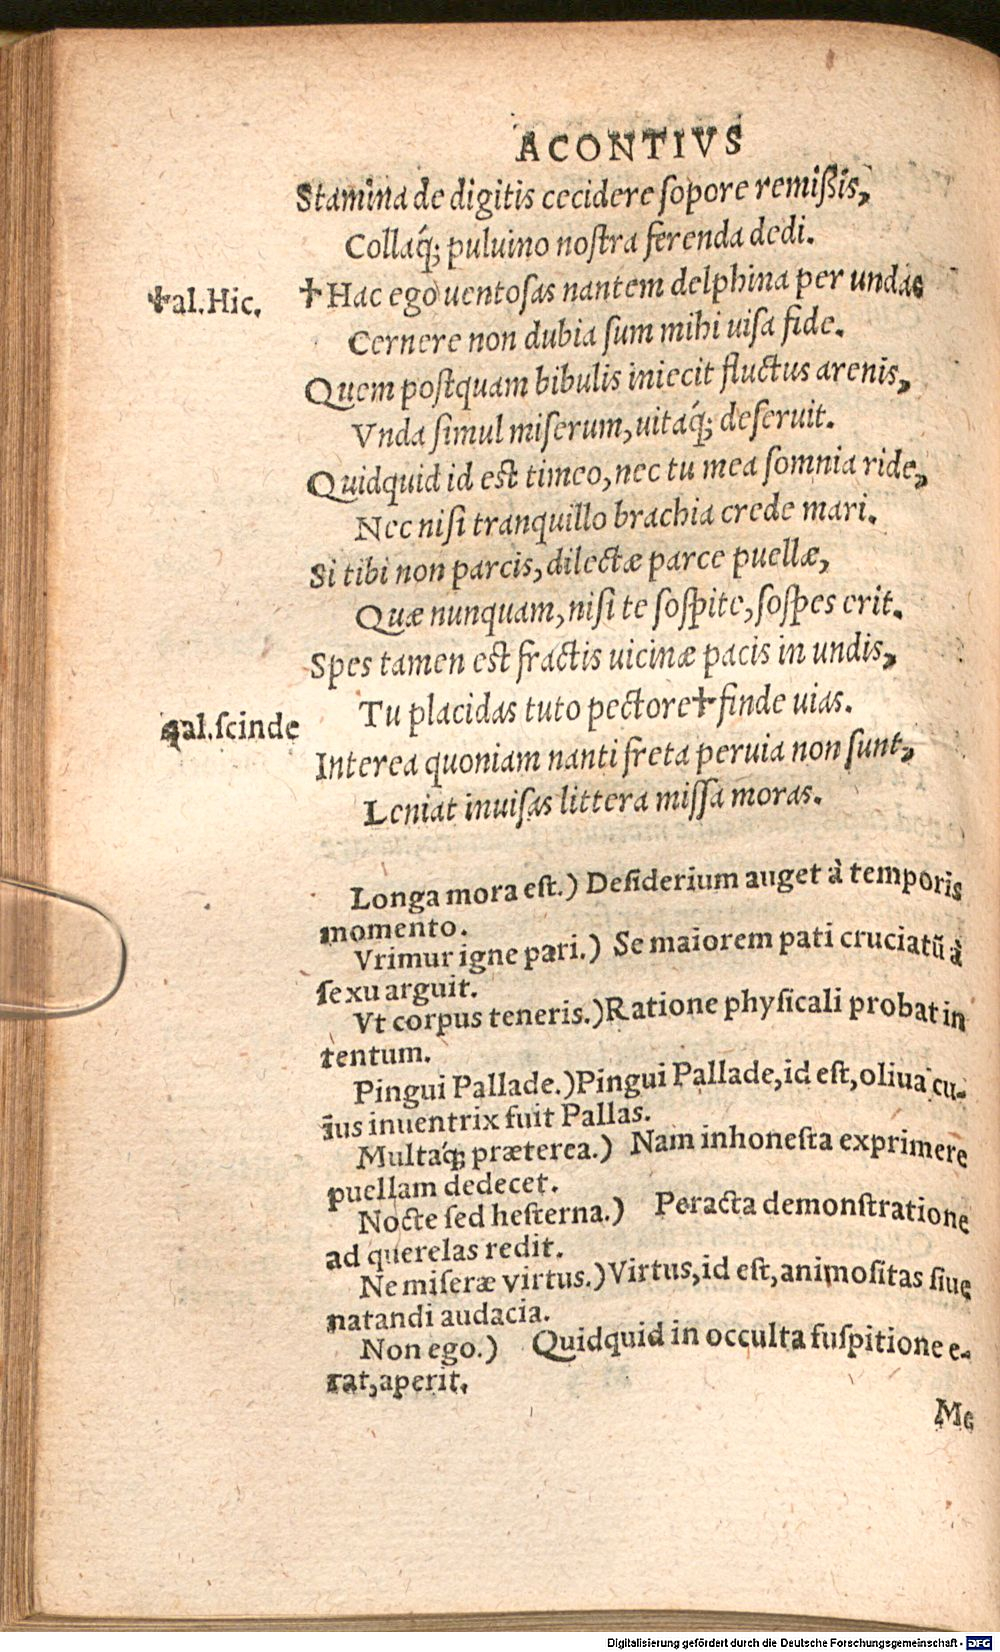 ACONTIVS
Stamina de digitis cecidere ſopore remiſsis,
Collaq́; puluino noſtra ferenda dedi.
✝al.Hic.
✝Hac ego uentoſas nantem delphina per undas
Cernere non dubia ſum mihi uiſa fide.
Quem poſtquam bibulis iniecit fluctus arenis,
Vnda ſimul miſerum, uitaq́; deſeruit.
Quidquid id eſt timeo, nec tu mea ſomnia ride,
Nec niſi tranquillo brachia crede mari.
Si tibi non parcis, dilectæ parce puellæ,
Quæ nunquam, niſi te ſoſpite, ſoſpes erit.
Spes tamen eſt fractis uicinæ pacis in undis,
Tu placidas tuto pectore✝finde uias.
al.ſcinde
Interea quoniam nanti freta peruia non ſunt,
Leniat inuiſas littera miſſa moras.
Longa mora eſt.) Deſiderium auget à temporis
momento.
Vrimur igne pari.) Se maiorem pati cruciatũ à
ſexu arguit.
Vt corpus teneris.) Ratione phyſicali probat in
tentum.
Pingui Pallade.) Pingui Pallade, id eſt, oliua cu-
ius inuentrix fuit Pallas.
Multaq́; præterea.) Nam inhoneſta exprimere
puellam dedecet.
Nocte ſed heſterna.) Peracta demonſtratione
ad querelas redit.
Ne miſeræ virtus.) Virtus, id eſt, animoſitas ſiue
natandi audacia.
Non ego.) Quidquid in occulta ſuſpitione e-
rat, aperit.
Me
Digitalisierung gefördert durch die Deutsche Forschungsgemeinschaft - DFG